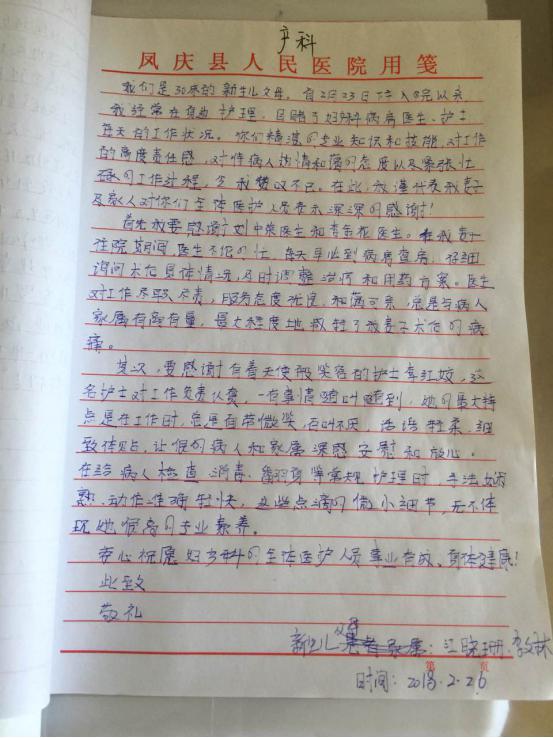 产科
凤庆县人民医院用笺
我们是30床的新生儿父母,自2月23日下午入院以来
我经常在身边护理,目睹了妇产科病房医生、护士
每天的工作状况。你们精湛的专业知识和技能,对工作
的高度责任感,对待病人热情和蔼的态度以及紧张忙
碌的工作过程,令我赞叹不已。在此,我谨代表我妻子
及家人对你们全体医护人员表示深深的感谢!
首先我要感谢医生和医生。在我妻子
住院期间医生不论多忙,每天早上到病房查房,仔细
询问大伯具体情况,及时调整治疗和用药方案。医生
对工作尽职尽责,服务态度优良,和蔼可亲,总是与病人
家属有商有量,最大程度地减轻了我妻子大伯的病
痛。
其次,要感谢有着天使般笑容的护士李江姣,这
名护士对工作负责认真,一有事情随叫随到,她的最大特
点是在工作时,总是面带微笑,百叫不厌,话语轻柔、细
致体贴,让住的病人和家属深感安慰和放心。
在给病人检查、消毒、等常规护理时,手法娴
熟、动作准确轻快,这些点滴的微小细节,无不体
现她很高的专业素养。
衷心祝愿妇产科的全体医护人员事业有成、身体健康!
此致
敬礼
新生儿父母:江晓珊、李文林
第 页
时间:2018.2.26